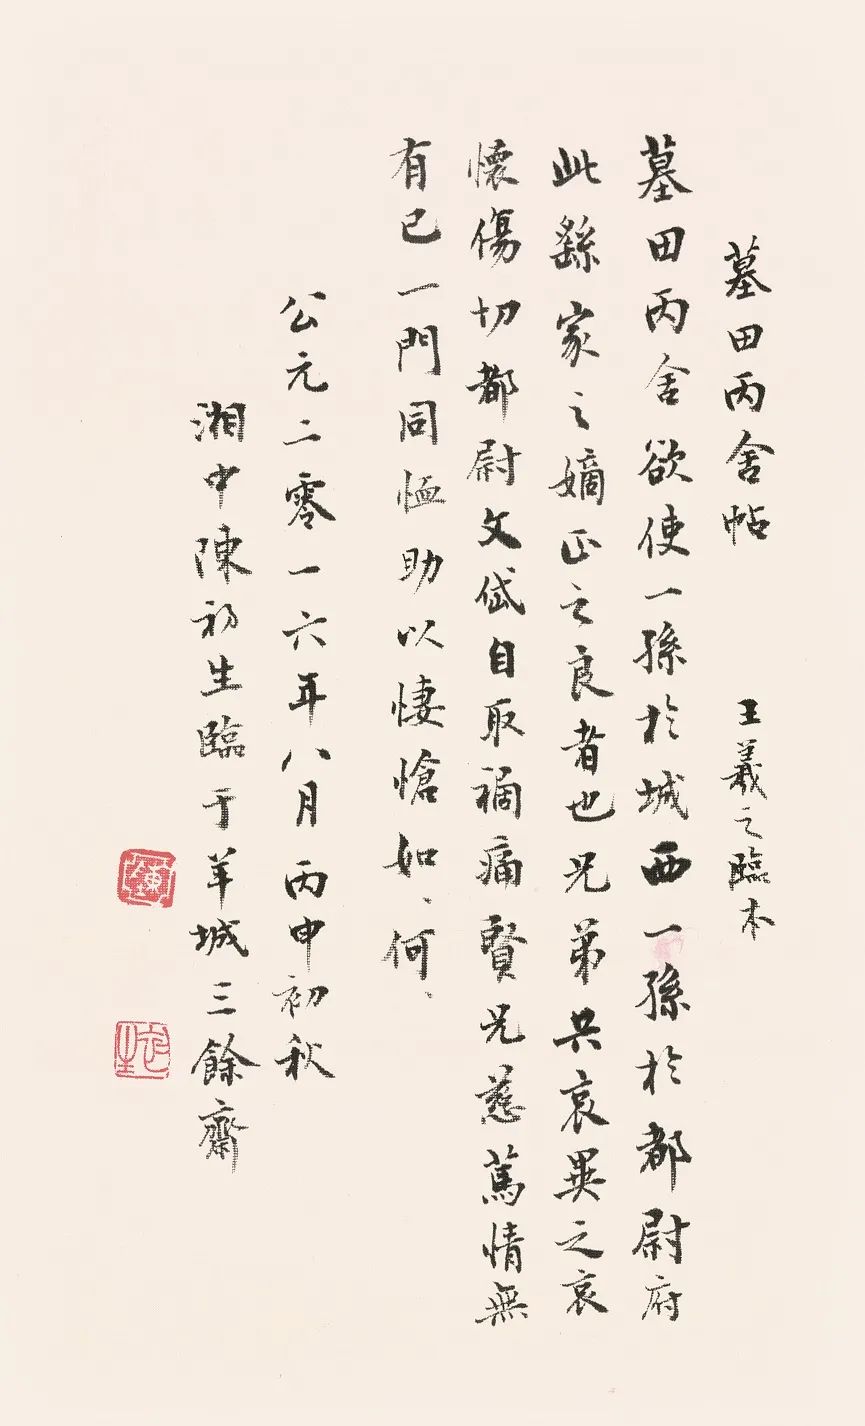 墓田丙舍帖 王羲之臨本
墓田丙舍欲使一孫於城西一孫於都尉府
此繇家之嫡正之良者也兄弟共哀異之哀
懷傷切都尉文岱自取禍痛賢兄慈篤情無
有已一門同恤助以悽愴如、何、
公元二零一六年八月丙申初秋
湘中陳初生臨于羊城三餘齋
陳
初生